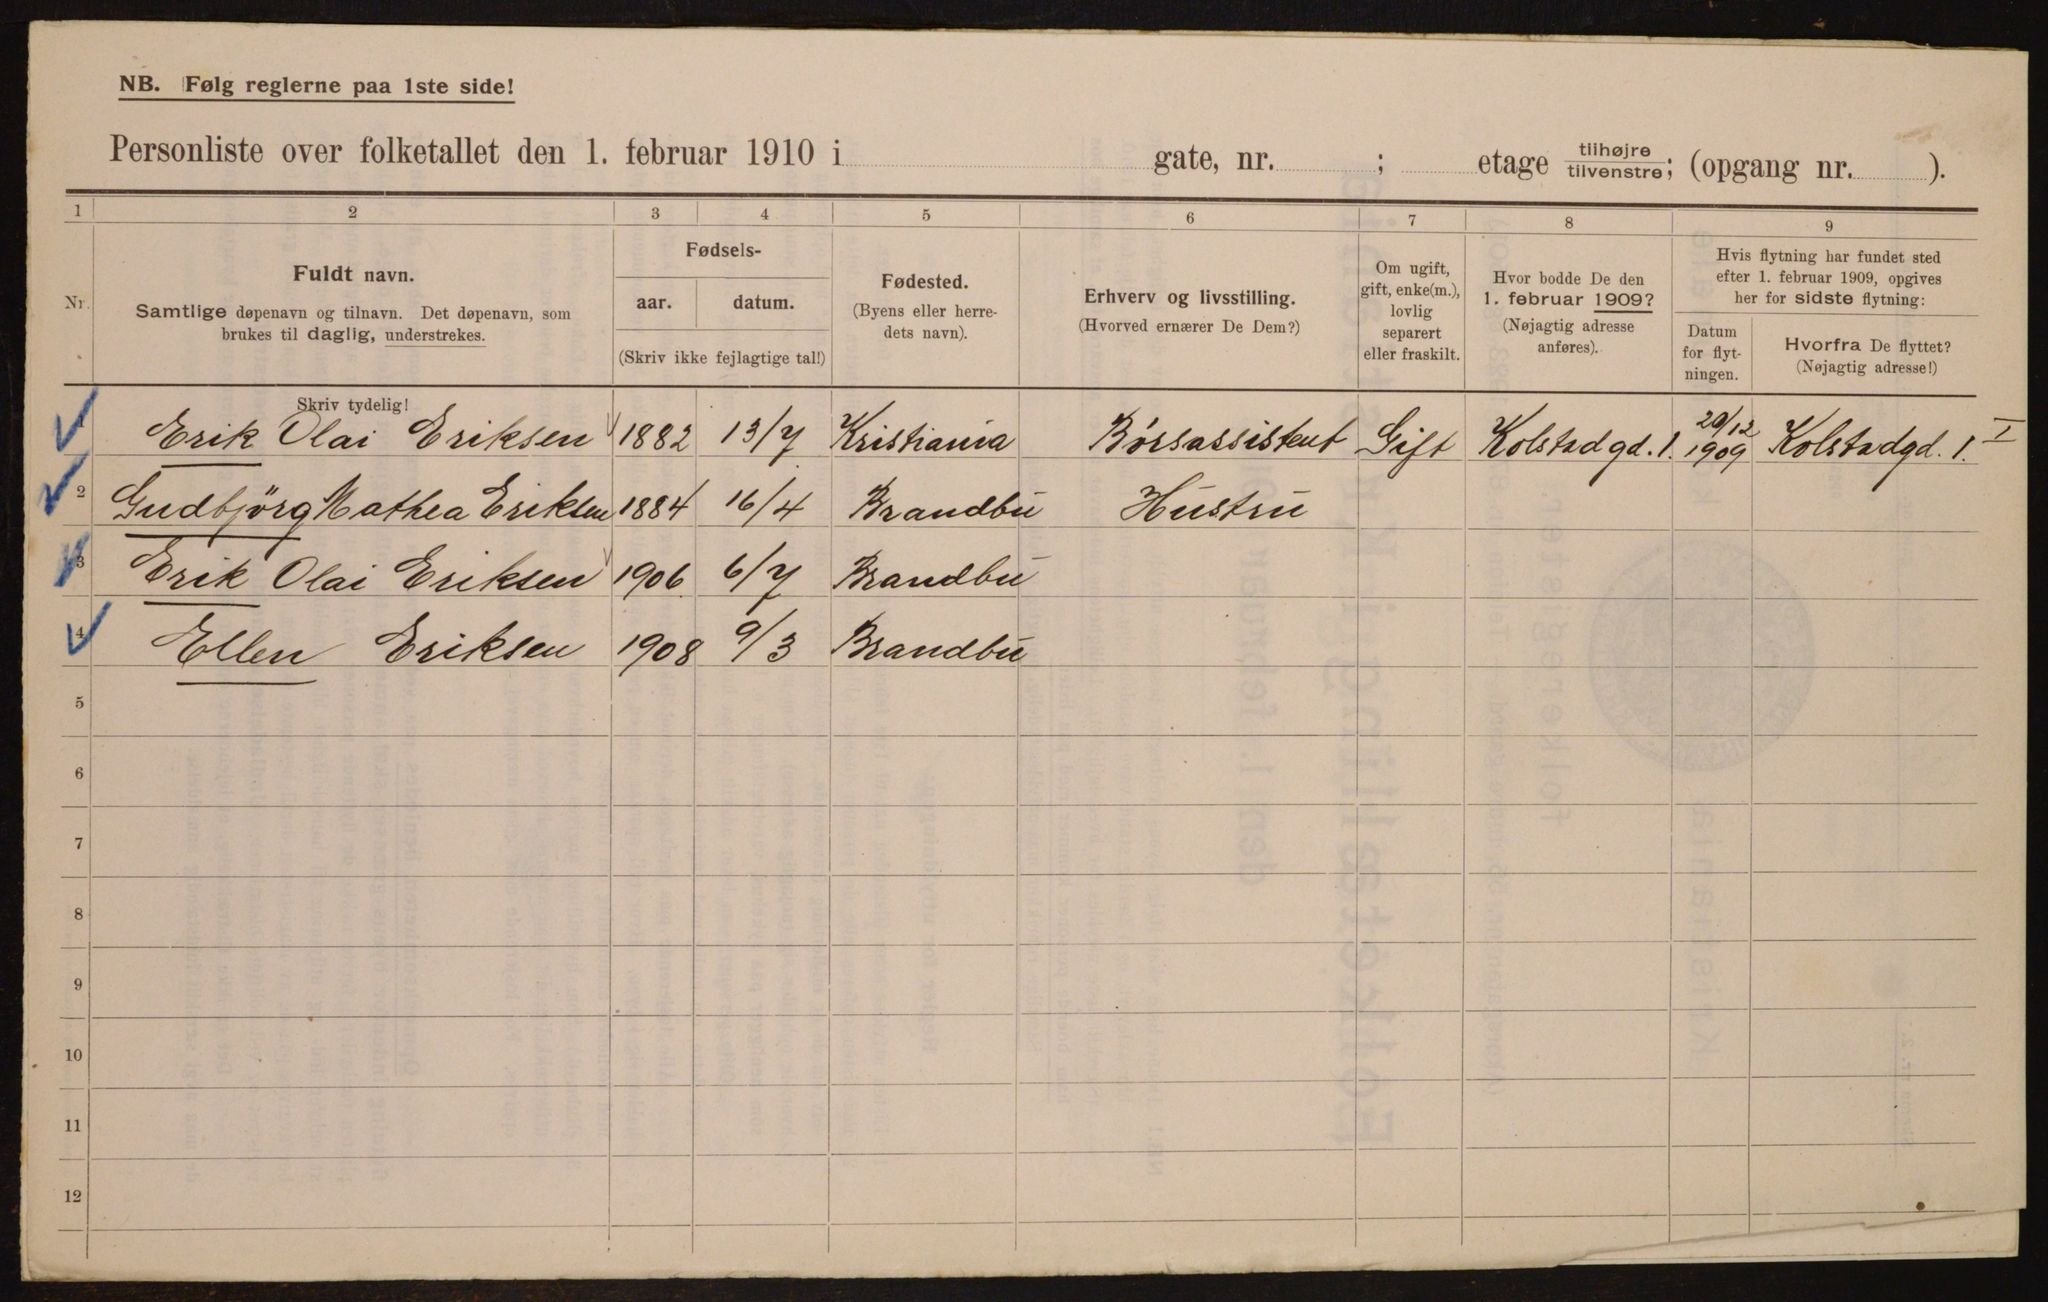 NB. Følg reglerne paa 1ste side!
Personliste over folketallet den 1. februar 1910 i gate, nr. ; etage tilhøjre/tilvenstre; (opgang nr. ).
1 2 3 4 5 6 7 8 9
Nr.
Fuldt navn.
Samtlige døpenavn og tilnavn. Det døpenavn, som
brukes til daglig, understrekes.
Fødsels-
aar. datum.
(Skriv ikke fejlagtige tal!)
Fødested.
(Byens eller herre-
dets navn).
Erhverv og livsstilling.
(Hvorved ernærer De Dem?)
Om ugift,
gift, enke(m.),
lovlig
separert
eller fraskilt.
Hvor bodde De den
1. februar 1909?
(Nøjagtig adresse
anføres).
Hvis flytning har fundet sted
efter 1. februar 1909, opgives
her for sidste flytning:
Datum
for flyt-
ningen.
Hvorfra De flyttet?
(Nøjagtig adresse!)
Skriv tydelig!
Erik Olai Eriksen 1882 13/7 Kristiania Børsassistent Gift Kolstadgd. 1. 20/12 1909 Kolstadgd. 1. I
2 Gudbjörg Mathea Eriksen 1884 16/4 Brandbu Hustru
3 Erik Olai Eriksen 1906 6/7 Brandbu
4 Ellen Eriksen 1908 9/3 Brandbu
5
6
7
8
9
10
11
12